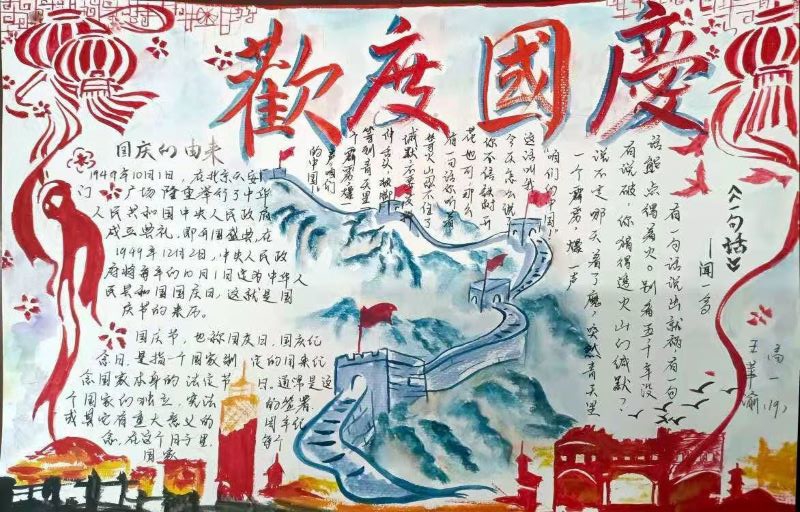 歡度國慶
国庆的由来
1949年10月1日，在北京天安
门广场隆重举行了中华
人民共和国中央人民政府
成立典礼，即开国盛典，在
1949年12月2日，中央人民政
府将每年的10月1日定为中华人
民共和国国庆日，这就是国
庆节的来历。
国庆节，也称国庆日、国庆纪
念日，是指一个国家制定的国来纪
念国家本身的法定节日，通常是这
个国家的独立、宪法的签署
或其它有重大意义的周年纪
念，在这个日子里，每个
国家
《一句话》
—闻一多
有一句话说出就祸，有一句
话能点得着火。别看五千年没
有说破，你猜得透火山的缄默？
说不定那天着了魔，突然青天里
一个霹雳，爆一声
“咱们的中国！”
这话叫我
今天怎么说？
你不信铁树开
花也可，那么
有一句话你听着：
等火山忍不住了
缄默不要发抖
伸舌头，顿脚
等到青天里
个霹雳，爆
声咱们
的中国！”
高一(9)
王華瑜